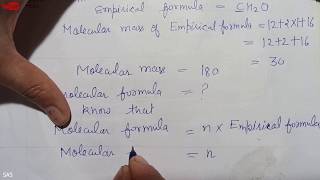 Empirical formula = CH2O
Molecular mass of Empirical formula = 12+2x1+16
= 12+2+16
= 30
Molecular mass = 180
formula = ?
know that
Molecular formula = n x Empirical formula
Molecular = n
SAS